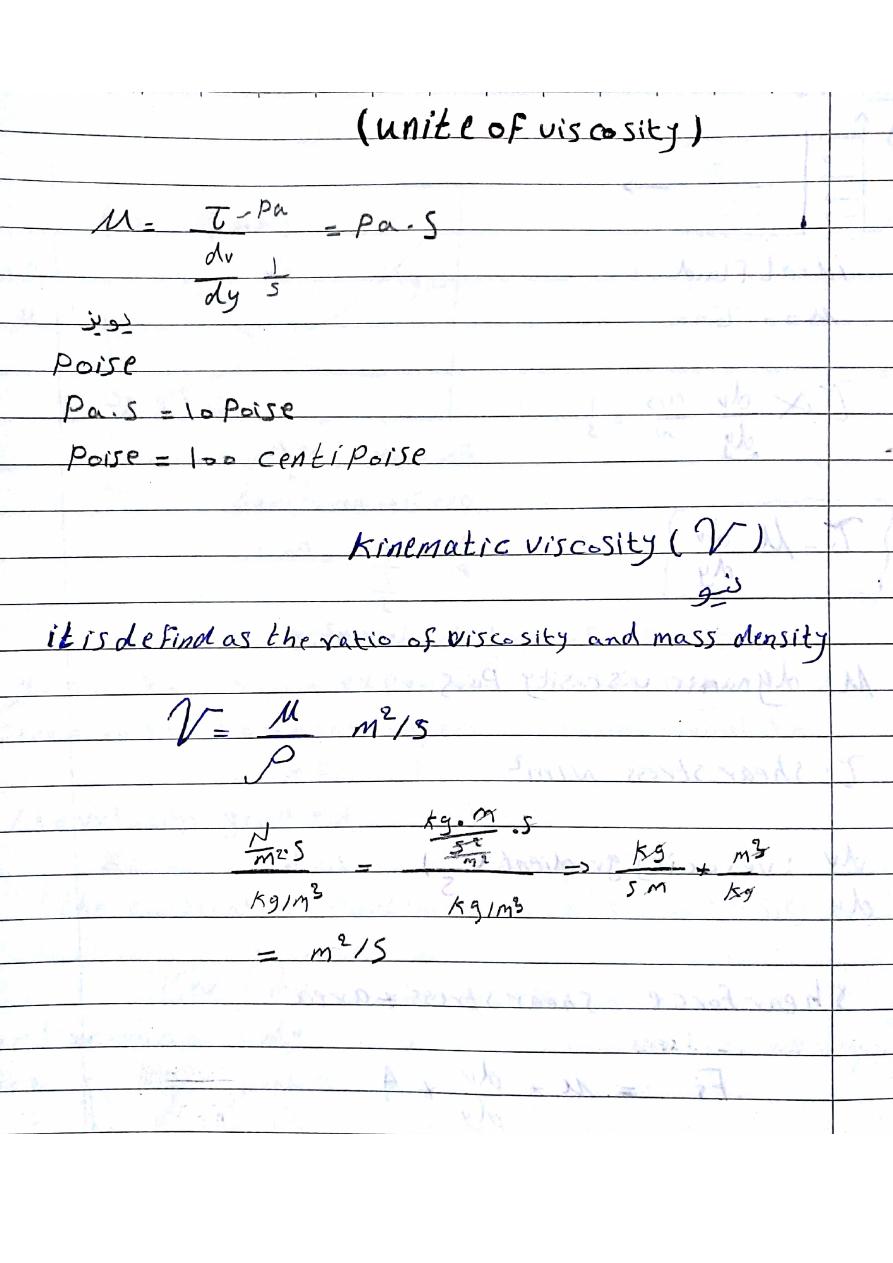 (unite of viscosity)
μ = τ - Pa / dv/dy 1/s = Pa.s
پویز
Poise
Pa.s = 10 Poise
Poise = 100 centipoise
Kinematic viscosity (ν)
نیو
it is defind as the ratio of viscosity and mass density
ν = μ/ρ m²/s
N/m².s / kg/m³ = kg.m/s²/m² .s / kg/m³ => kg/s m * m³/kg
= m²/s